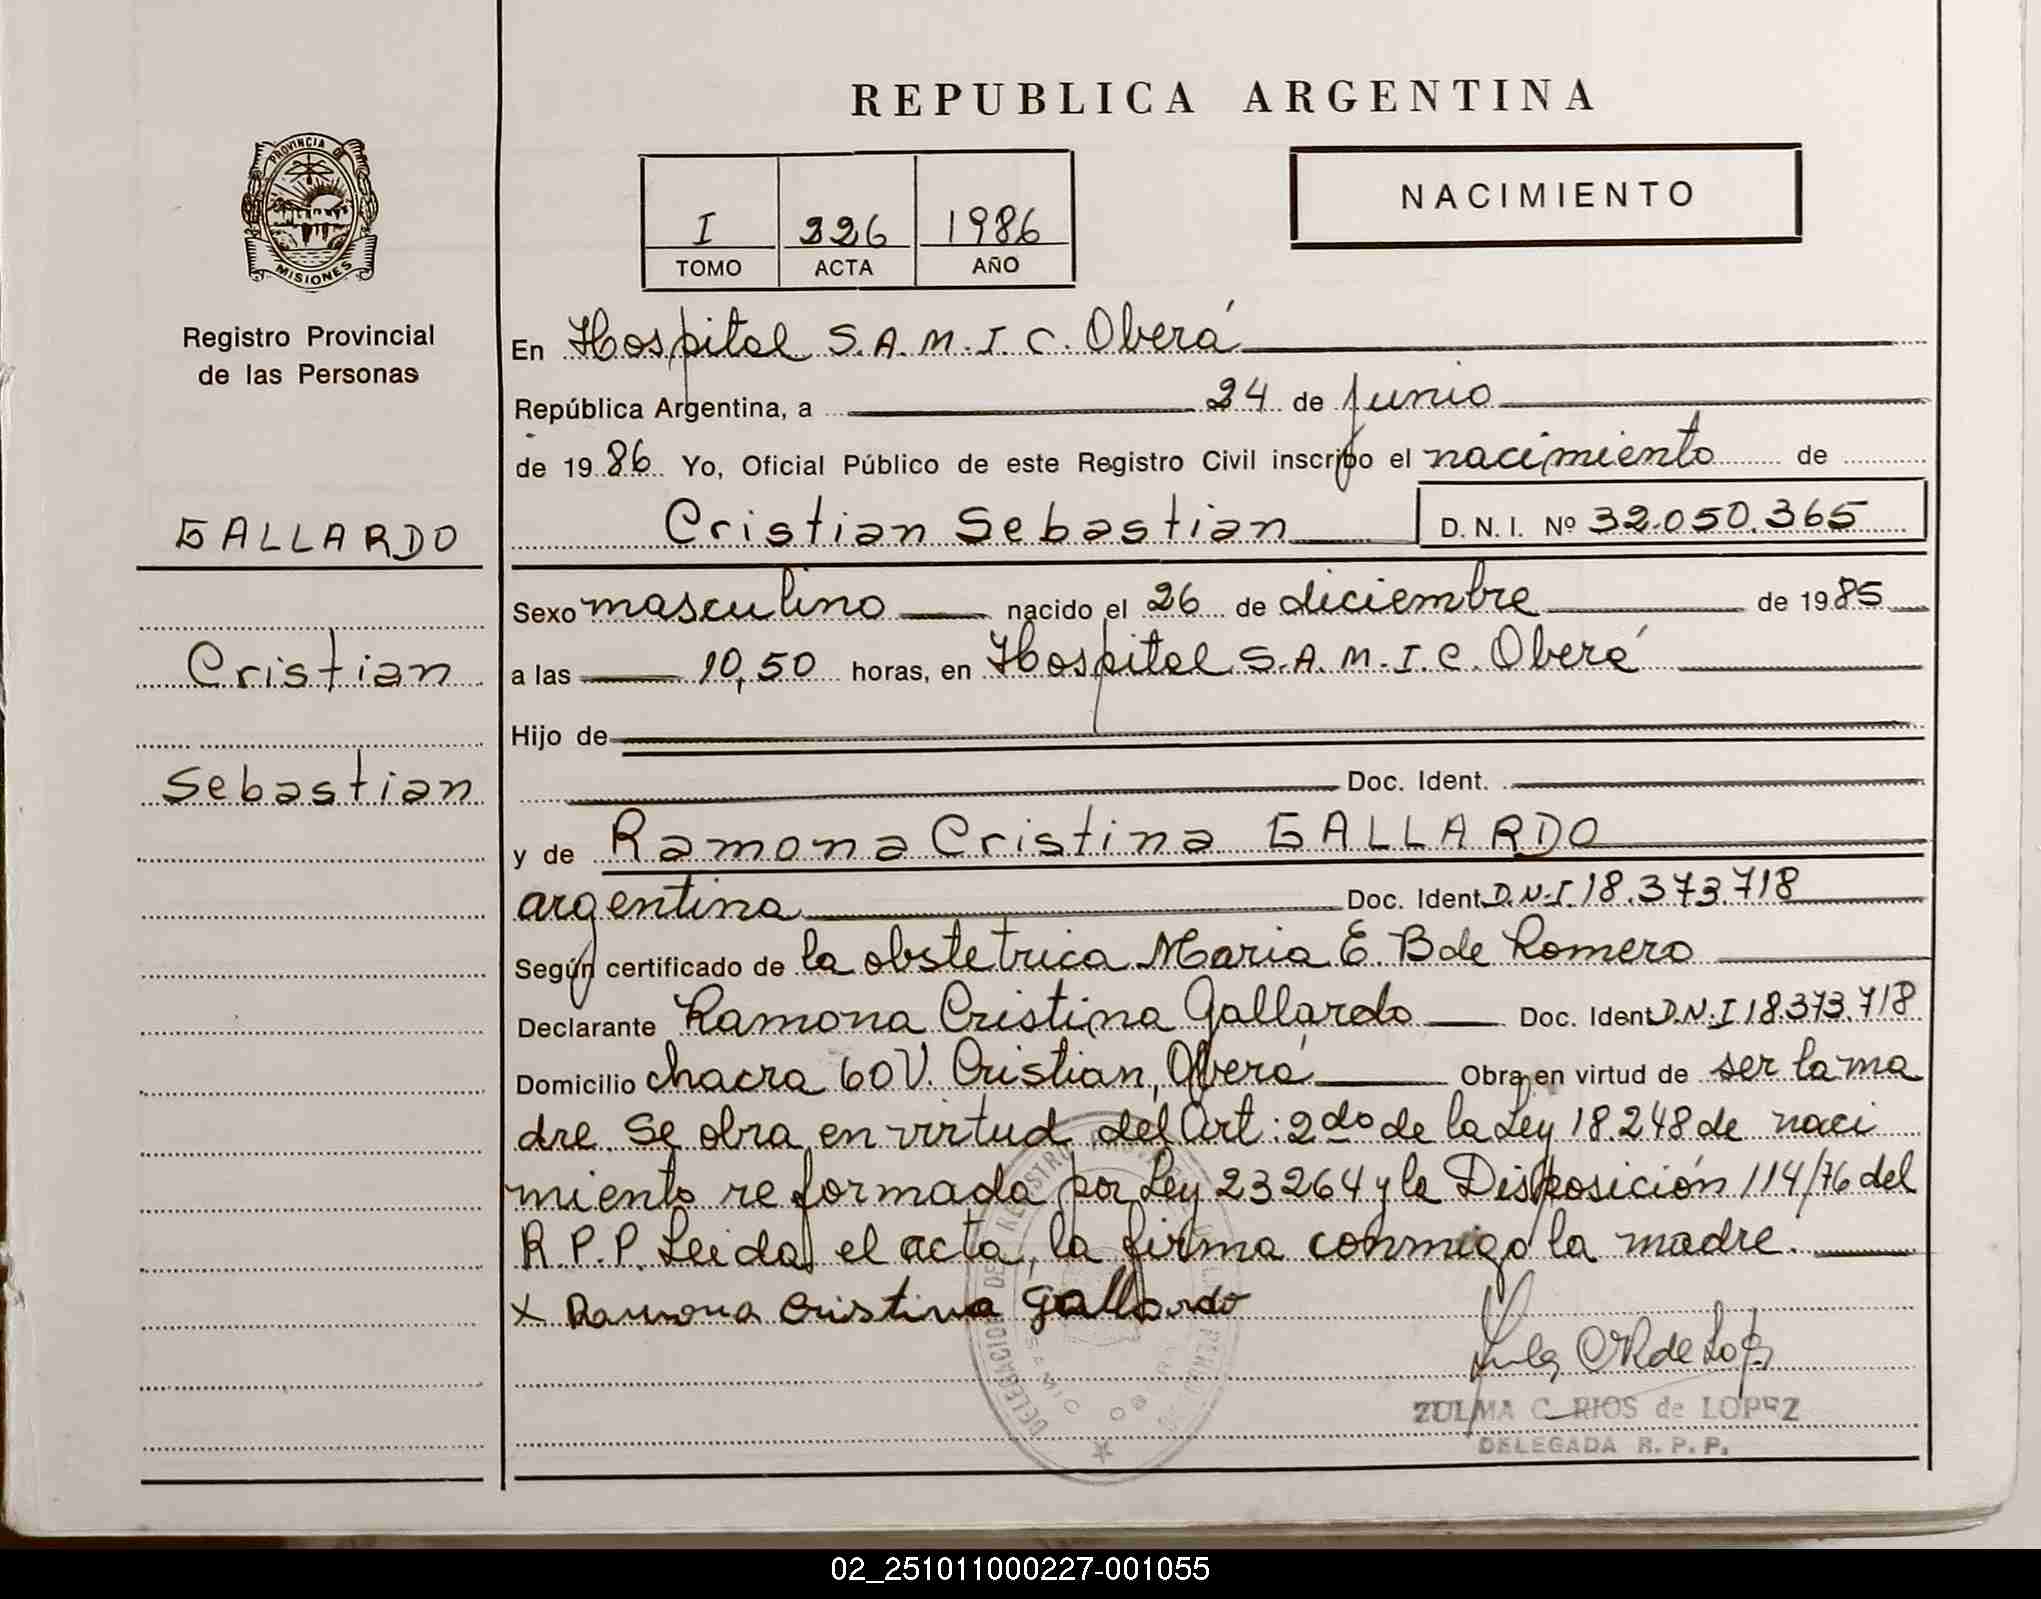 REPUBLICA ARGENTINA
PROVINCIA DE
MISIONES
Registro Provincial
de las Personas
I 326 1986
TOMO ACTA AÑO
NACIMIENTO
GALLARDO
Cristian
Sebastian
En Hospital S.A.M.I.C. Oberá
República Argentina, a 24 de junio
de 1986 Yo, Oficial Público de este Registro Civil inscribo el nacimiento de
Cristian Sebastian D.N.I. Nº 32.050.365
Sexo masculino nacido el 26 de diciembre de 1985
a las 10,50 horas, en Hospital S.A.M.I.C. Oberá
Hijo de
Doc. Ident.
y de Ramona Cristina GALLARDO
argentina Doc. Ident. D.N.I. 18.373.718
Según certificado de la obstetrica Maria E. B de Romero
Declarante Ramona Cristina Gallardo Doc. Ident. D.N.I 18.373.718
Domicilio chacra 60 V. Cristian, Oberá Obra en virtud de ser la ma
dre. Se obra en virtud del Art: 2do de la Ley 18.248 de naci
miento reformada por Ley 23264 y la Disposición 114/76 del
R.P.P. Leida el acta, la firma conmigo la madre.
x Ramona Cristina Gallardo
ZULMA C. RIOS de LOPEZ
DELEGADA R.P.P.
02_251011000227-001055